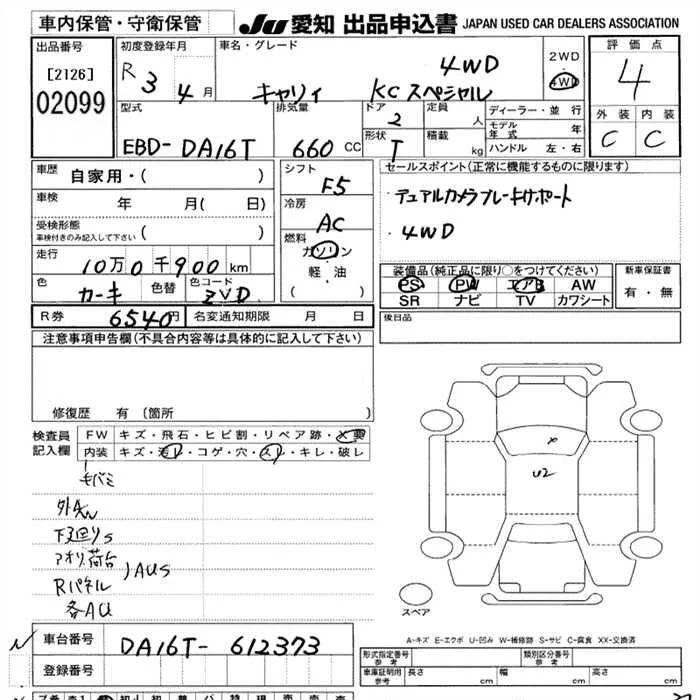 車内保管・守衛保管
JU 愛知 出品申込書 JAPAN USED CAR DEALERS ASSOCIATION
出品番号
[2126]
02099
初度登録年月
R 3 4月
車名・グレード
キャリィ KCスペシャル 4WD
2WD
4WD
評価点
4
外装 内装
C C
型式
EBD-DA16T
排気量
660 CC
ドア
2
形状
T
定員
人
積載
kg
ディーラー・並行
モデル年式 年
ハンドル 左・右
車歴
自家用・( )
車検
年 月( 日)
受検形態
車検付きのみ記入して下さい ( )
走行
10万0千900km
色
カーキ
色替
色コード
ZVD
シフト
F5
冷房
AC
燃料
ガソリン
軽・油
( )
セールスポイント(正常に機能するものに限ります)
・デュアルカメラブレーキサポート
・4WD
装備品(純正品に限り○をつけてください)
PS PW エアB AW
SR ナビ TV カワシート
新車保証書
有・無
R券 6540円 名変通知期限 月 日
後日品
注意事項申告欄(不具合内容等は具体的に記入して下さい)
修復歴 有(箇所
検査員
記入欄
FW キズ・飛石・ヒビ割・リペア跡・X要
内装 キズ・汚レ・コゲ・穴・スレ・キレ・破レ
下回りS
アオリ荷台
Rパネル
各AU
AUS
X
U2
スペア
A-キズ E-エクボ U-凹み W-補修跡 S-サビ C-腐食 XX-交換済
車台番号
DA16T-612373
登録番号
形式指定番号
参考
類別区分番号
参考
車庫証明用
参考
長さ cm 幅 cm 高さ cm